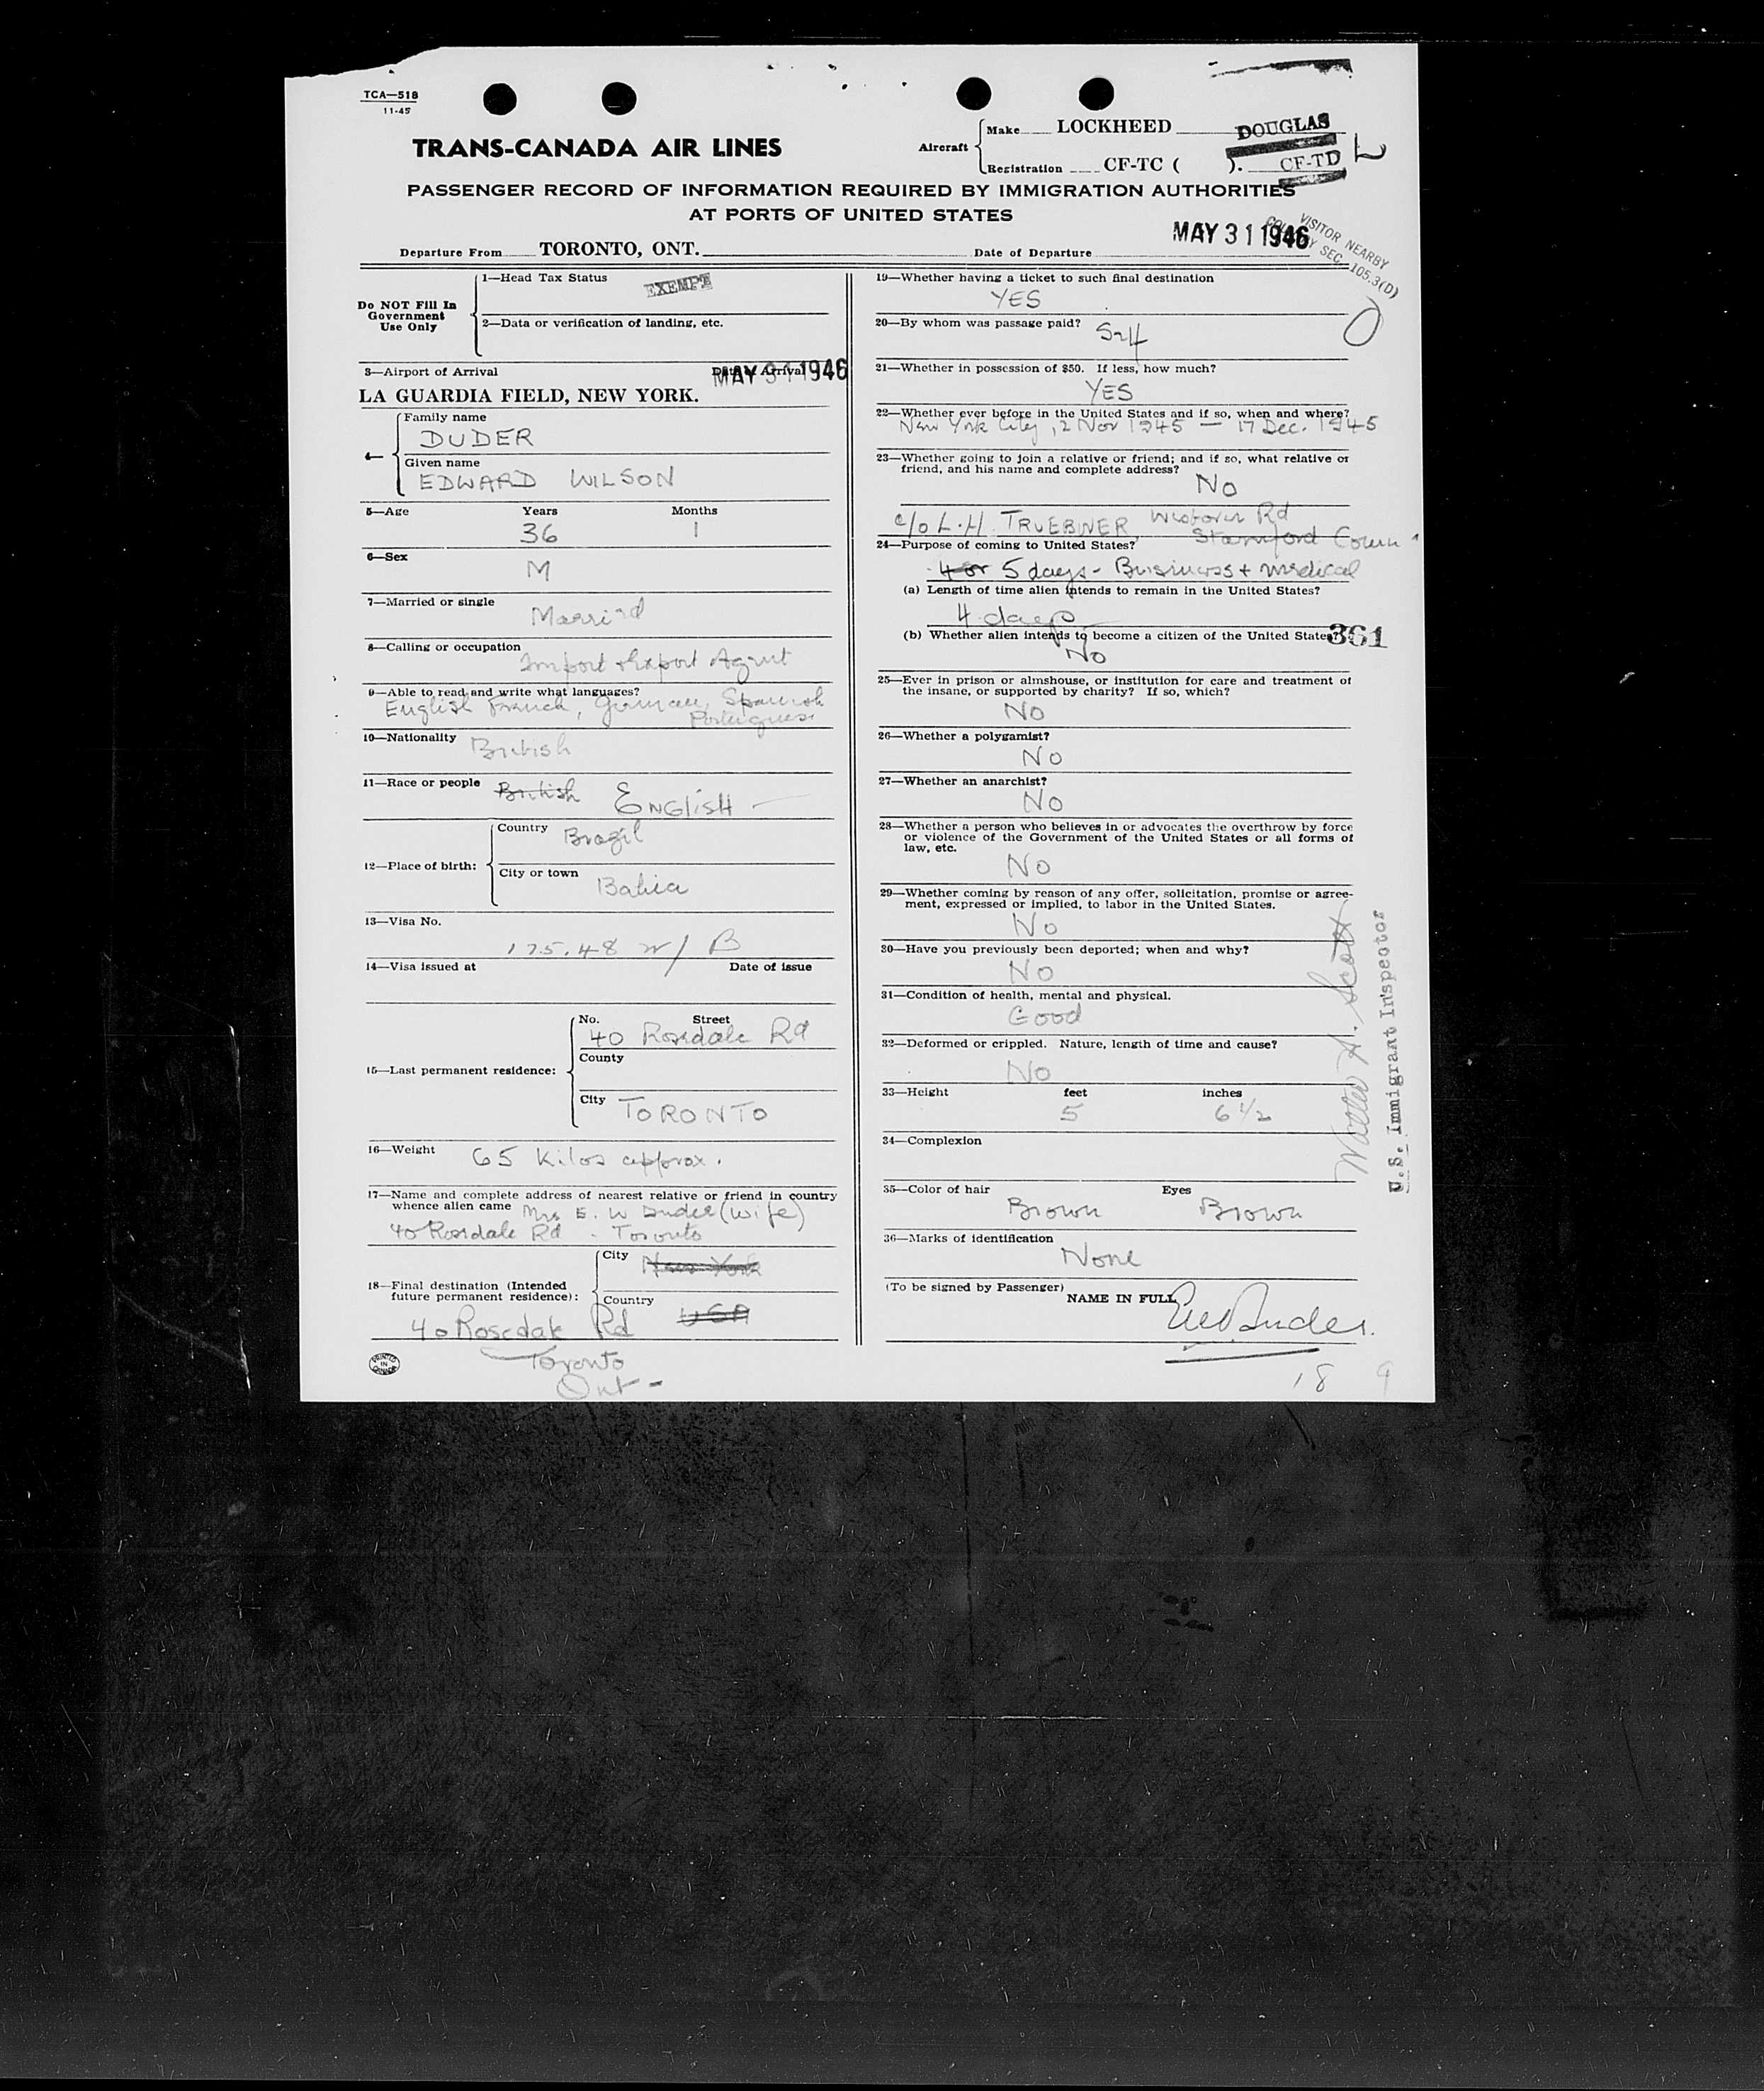 TCA—518
11-45
TRANS-CANADA AIR LINES
Aircraft
Make LOCKHEED DOUGLAS
Registration CF-TC ( ). CF-TD L
PASSENGER RECORD OF INFORMATION REQUIRED BY IMMIGRATION AUTHORITIES
AT PORTS OF UNITED STATES
VISITOR NEARBY
COUNTRY SEC. 105.3(D)
Departure From TORONTO, ONT. Date of Departure MAY 31 1946
Do NOT Fill In
Government
Use Only
1—Head Tax Status EXEMPT
2—Data or verification of landing, etc.
3—Airport of Arrival Date of Arrival MAY 31 1946
LA GUARDIA FIELD, NEW YORK.
Family name
DUDER
Given name
EDWARD WILSON
5—Age Years Months
36 1
6—Sex
M
7—Married or single
Married
8—Calling or occupation
Import & Export Agent
9—Able to read and write what languages?
English French, German, Spanish
Portuguese
10—Nationality British
11—Race or people British ENGlisH —
12—Place of birth:
Country Brazil
City or town Bahia
13—Visa No.
175.48 w/ B
14—Visa issued at Date of issue
15—Last permanent residence:
No. Street
40 Rosedale Rd
County
City TORONTO
16—Weight 65 Kilos approx.
17—Name and complete address of nearest relative or friend in country
whence alien came Mrs E. W Duder (wife)
40 Rosedale Rd - Toronto
18—Final destination (Intended
future permanent residence):
City New York
Country USA
40 Rosedale Rd
Toronto
Ont -
PRINTED
IN
CANADA
19—Whether having a ticket to such final destination
YES
20—By whom was passage paid? Self
21—Whether in possession of $50. If less, how much?
YES
22—Whether ever before in the United States and if so, when and where?
New York City, 2 Nov 1945 — 17 Dec. 1945
23—Whether going to join a relative or friend; and if so, what relative or
friend, and his name and complete address?
No
c/o L.H. TRUEBNER Westover Rd
Stamford Conn
24—Purpose of coming to United States?
4 or 5 days - Business + medical
(a) Length of time alien intends to remain in the United States?
4 days
(b) Whether alien intends to become a citizen of the United States? 361
No
25—Ever in prison or almshouse, or institution for care and treatment of
the insane, or supported by charity? If so, which?
No
26—Whether a polygamist?
No
27—Whether an anarchist?
No
28—Whether a person who believes in or advocates the overthrow by force
or violence of the Government of the United States or all forms of
law, etc.
No
29—Whether coming by reason of any offer, solicitation, promise or agree-
ment, expressed or implied, to labor in the United States.
No
30—Have you previously been deported; when and why?
No
31—Condition of health, mental and physical.
Good
32—Deformed or crippled. Nature, length of time and cause?
No
33—Height feet inches
5 6 1/2
34—Complexion
35—Color of hair Eyes
Brown Brown
36—Marks of identification
None
(To be signed by Passenger)
NAME IN FULL EW Duder.
18 9
A. Scott
U.S. Immigrant Inspector